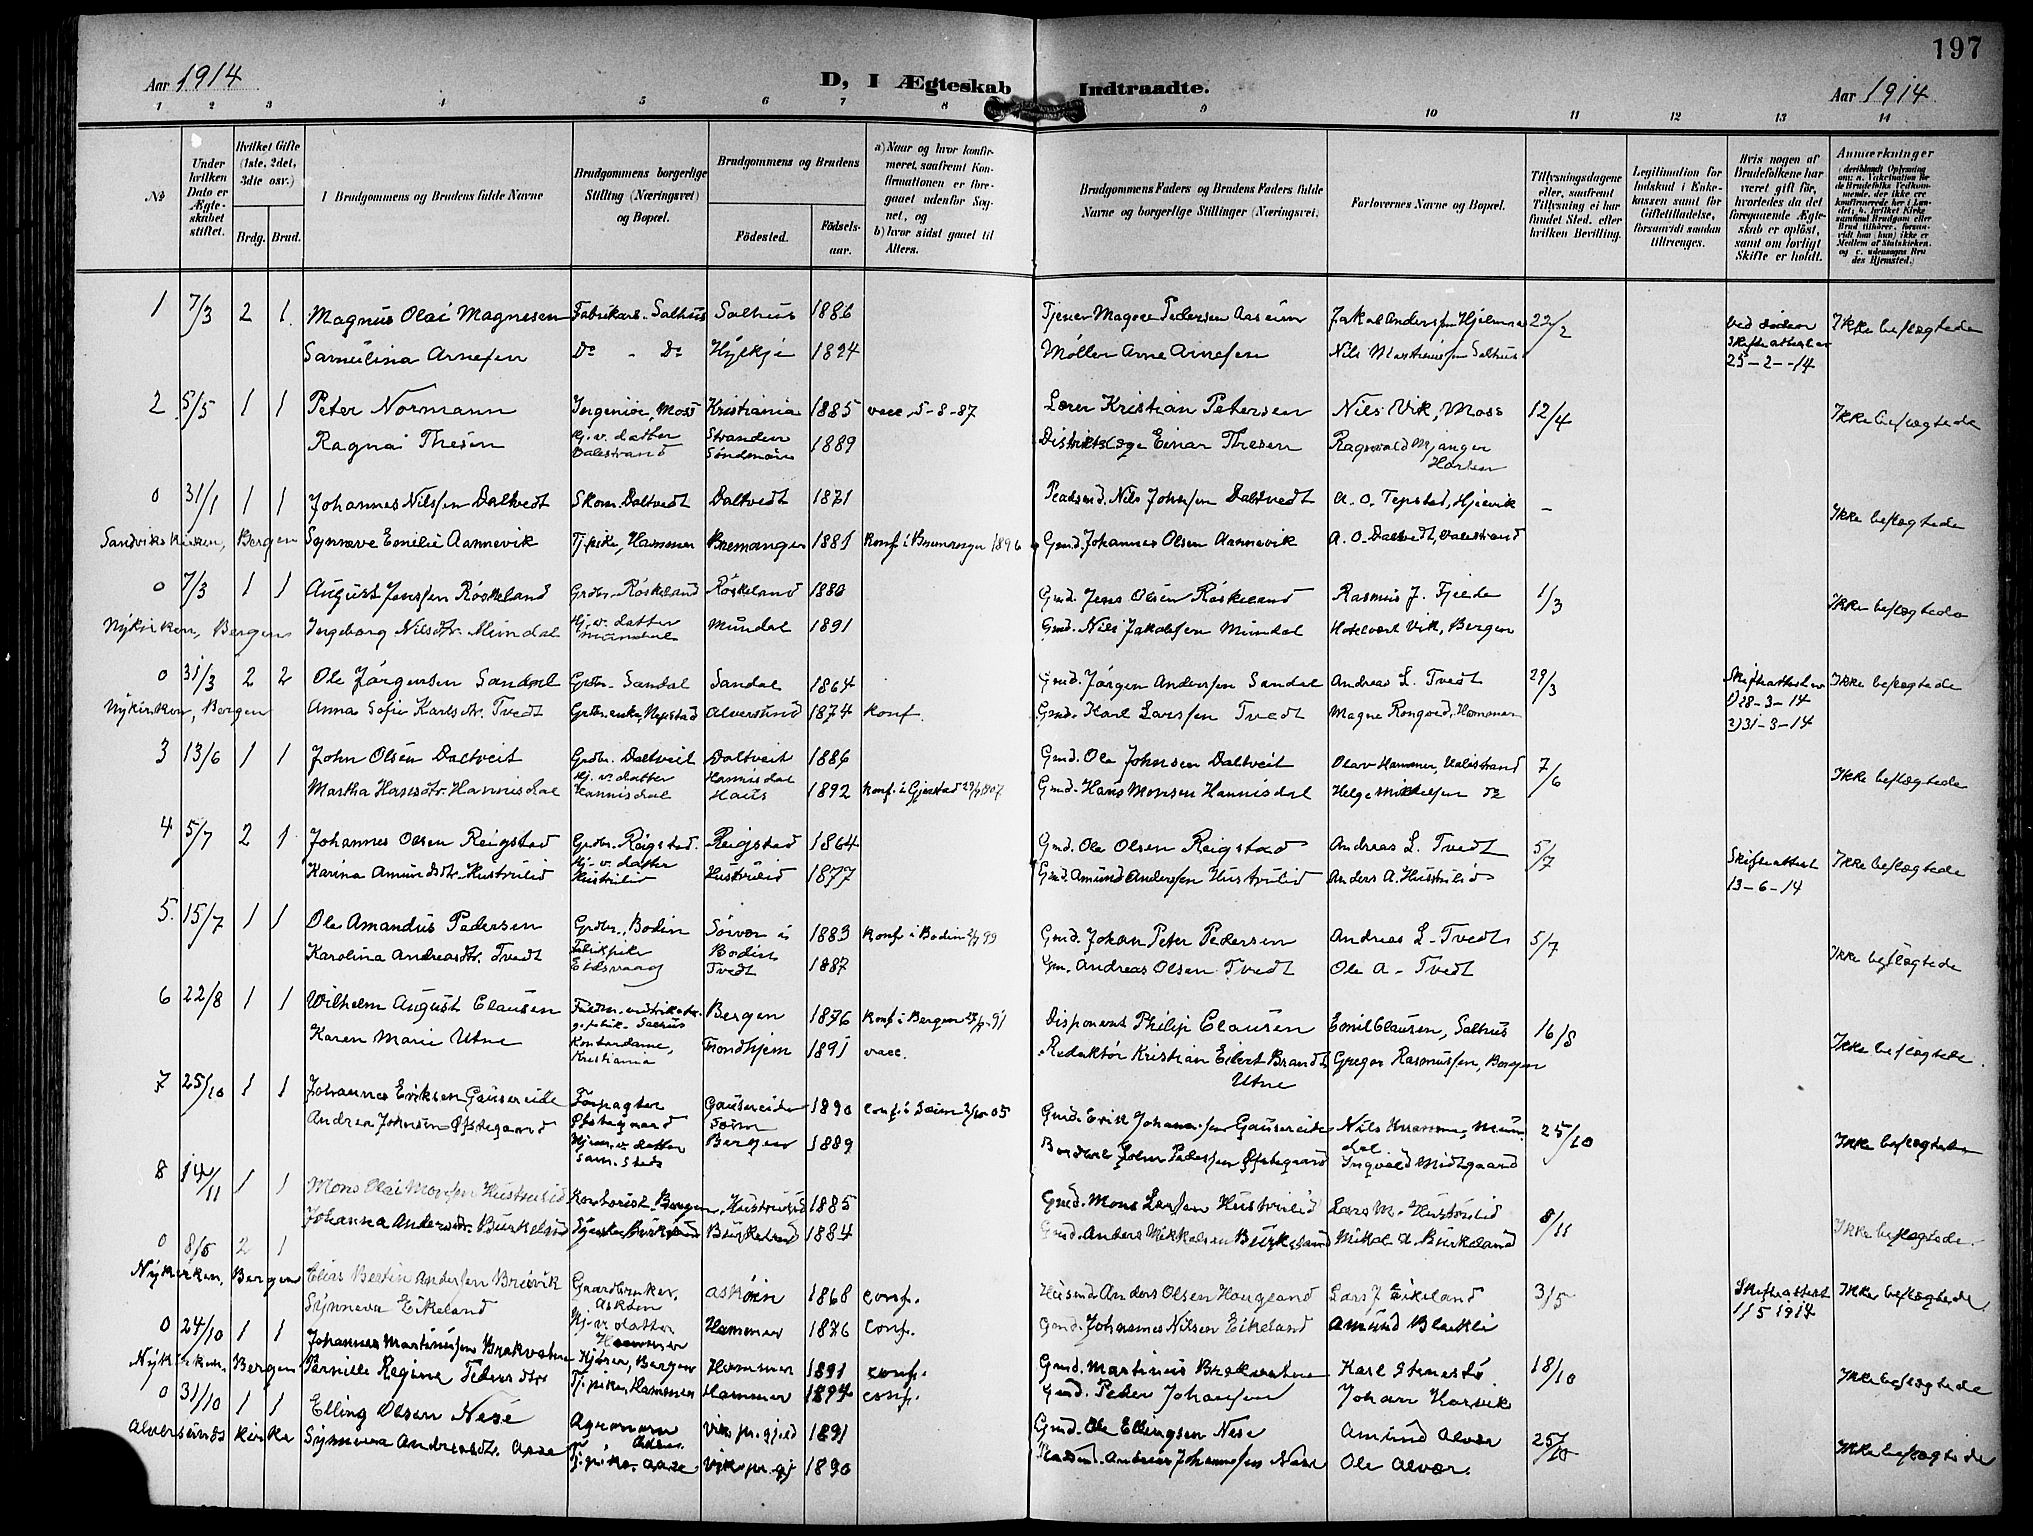 197
Aar 1914
D, I Ægteskab Indtraadte.
Aar 1914
1 2 3 4 5 6 7 8 9 10 11 12 13 14
No
Under hvilken Dato er Ægteskabet stiftet.
Hvilket Gifte (1ste, 2det, 3die osv.)
Brdg. Brud.
Brudgommens og Brudens fulde Navne
Brudgommens borgerlige Stilling (Næringsvei) og Bopæl.
Brudgommens og Brudens
Fødested. Fødsels-aar.
a) Naar og hvor konfirmeret, saafremt Konfirmationen er foregaaet udenfor Sognet, og
b) hvor sidst gaaet til Alters.
Brudgommens Faders og Brudens Faders fulde Navne og borgerlige Stillinger (Næringsvei).
Forlovernes Navne og Bopæl.
Tillysningsdagene eller, saafremt Tillysning ei har fundet Sted, efter hvilken Bevilling.
Legitimation for Indskud i Enkekassen samt for Giftetilladelse, forsaavidt saadan tiltrænges.
Hvis nogen af Brudefolkene har været gift før, hvorledes da det foregaaende Ægteskab er opløst, samt om lovligt Skifte er holdt.
Anmærkninger
1 7/3 2 1 Magnus Olai Magnesen Fabrikarb. Salhus Salhus 1886 Tjener Magne Pedersen Aaseim Jakob Andersen Hjelmaa 22/2 Ved døden Ikke beslægtede
Samulina Arnesen Do - Do Hylkje 1894 Møller Arne Arnesen Nils Martinussen Salhus Skifteattest av
25-2-14
2 5/5 1 1 Peter Normann Ingeniør, Moss Kristiania 1885 vacc. 5-8-87 Lærer Kristian Petersen Nils Vik, Moss 12/4 Ikke beslægtede
Ragnai Thesen Hj.v. datter Balestrand Stranden Søndmøre 1889 Distriktslæge Einar Thesen Ragnvald Mjanger
0 31/1 1 1 Johannes Nilssen Daltvedt Skom. Daltvedt Daltvedt 1871 Pladsmd. Nils Johnsen Daltvedt A. O. Tepstad, Hjelvik - Ikke beslægtede
Sandvikskirken, Bergen Synneve Emilie Aannevik Tj.pike, Hammer Bremanger 1881 Konf. i Bremanger 1896 Gmd. Johannes Olsen Aannevik A. O. Daltvedt, Valestrand
0 7/3 1 1 August Jenssen Røskeland Grdbr. Røskeland Røskeland 1880 Gmd. Jens Olsen Røskeland Rasmus J. Fjelde 1/3 Ikke beslægtede
Nykirken, Bergen Ingeborg Nilsdtr. Mundal Hj. v. datter Mundal Mundal 1891 Gmd. Nils Jakobsen Mundal Hotelvert Vik, Bergen
0 31/3 2 2 Ole Jørgensen Sandal Grdbr. Sandal Sandal 1864 Gmd. Jørgen Anderssen Sandal Andreas L. Tvedt 29/3 Skifteattest av Ikke beslægtede
Nykirken, Bergen Anna Sofie Karlsdtr. Tvedt Grdbr.enke, Alversund 1874 Konf. Gmd. Karl Larssen Tvedt Magne Rongved, Hammer 1) 28-3-14
2) 31-3-14
3 13/6 1 1 John Olsen Daltveit Grdbr. Daltveit Daltveit 1886 Gmd. Ole Johnsen Daltveit Olav Hammer, Valestrand 7/6 Ikke beslægtede
Martha Hansdtr. Hannisdal Hj. v. datter Hannisdal Hannisdal Haus 1892 Konf. i Gjerstad 1907 Gmd. Hans Monsen Hannisdal Helge Mikkelsen do
4 5/7 2 1 Johannes Olsen Reigstad Grdbr. Reigstad Reigstad 1864 Gmd. Ole Olsen Reigstad Andreas L. Tvedt 5/7 Skifteattest Ikke beslægtede
Karina Amundsdtr. Hustrulid Hj. v. datter Hustrulid Hustrulid 1877 Gmd. Amund Anderssen Hustrulid Anders A. Hustrulid 13-6-14
5. 15/7 1 1 Ole Amandus Pedersen Grdbr., Bodin Sørvær i Bodin 1883 Konf. i Bodin 2/7 99 Gmd. Johan Peter Pedersen Andreas L. Tvedt 5/7 Ikke beslægtede
Karolina Andreasdtr. Tvedt Fabrikpike Eidsvaag Tvedt 1887 Gm. Andreas Olsen Tvedt Ole A. Tvedt
6 22/8 1 1 Wilhelm August Clausen Salhus Bergen 1876 Konf. i Bergen 91 Disponent Philip Clausen Emil Clausen, Salhus 16/8 Ikke beslægtede
Karen Marie Utne Kontordame, Kristiania Trondhjem 1891 vacc. Redaktør Kristian Eilert Brandt Utne Gregor Rasmussen, Bergen
7 25/10 1 1 Johannes Eriksen Gausereide Forpagter Øfstegaard Gausereide 1890 Gmd. Erik Johannessen Gausereide Nils Mundal 25/10 Ikke beslægtede
Andrea Johnsen Øfstegaard Hjem.v. datter Sam. Steds Bergen 1889 John Pedersen Øfstegaard Ingvald Midtgaard
8 14/11 1 1 Mons Olai Monsen Hustrulid Kontorist, Bergen Hustrulid 1885 Gmd. Mons Larsen Hustrulid Lars M. Hustrulid 8/11 Ikke beslægtede
Johanna Andersdtr. Burkeland Burkeland Burkeland 1884 Gmd. Anders Mikkelsen Burkeland Mikal A. Burkeland
0 8/5 2 1 Elias Bertin Andersen Breivik Gaardbruker, Askøen Askøen 1868 conf. Husmd. Anders Olsen Haugland Lars J. Eikeland 3/5 Skifteattest 1/5 1914 Ikke beslægtede
Nykirken, Bergen Synneva Eikeland Hj. v. datter Hammer Hammer 1876 Conf. Gmd. Johannes Nilsen Eikeland Amund Blackli
0 24/10 1 1 Johannes Martinussen Brakvatne Kjører, Bergen Hammer 1891 conf. Gmd. Martinus Brakvatne Karl Stensto 18/10 Ikke beslægtede
Nykirken, Bergen Pernille Regine Pedersdtr Tj.pike, Hammer Hammer 1894 conf. Gmd. Peder Johansen Johan Horsvik
0 31/10 1 1 Elling Olsen Nese Agronom Vik pr.gjeld 1891 Gmd. Ole Ellingsen Nese Amund Alvær 25/10 Ikke beslægtede
Alversunds Kirke Synneva Andreasdtr. Aase Tj.pike, Aase Vik pr. gj 1890 Pladsmd. Andreas Johannessen Ole Alvær.